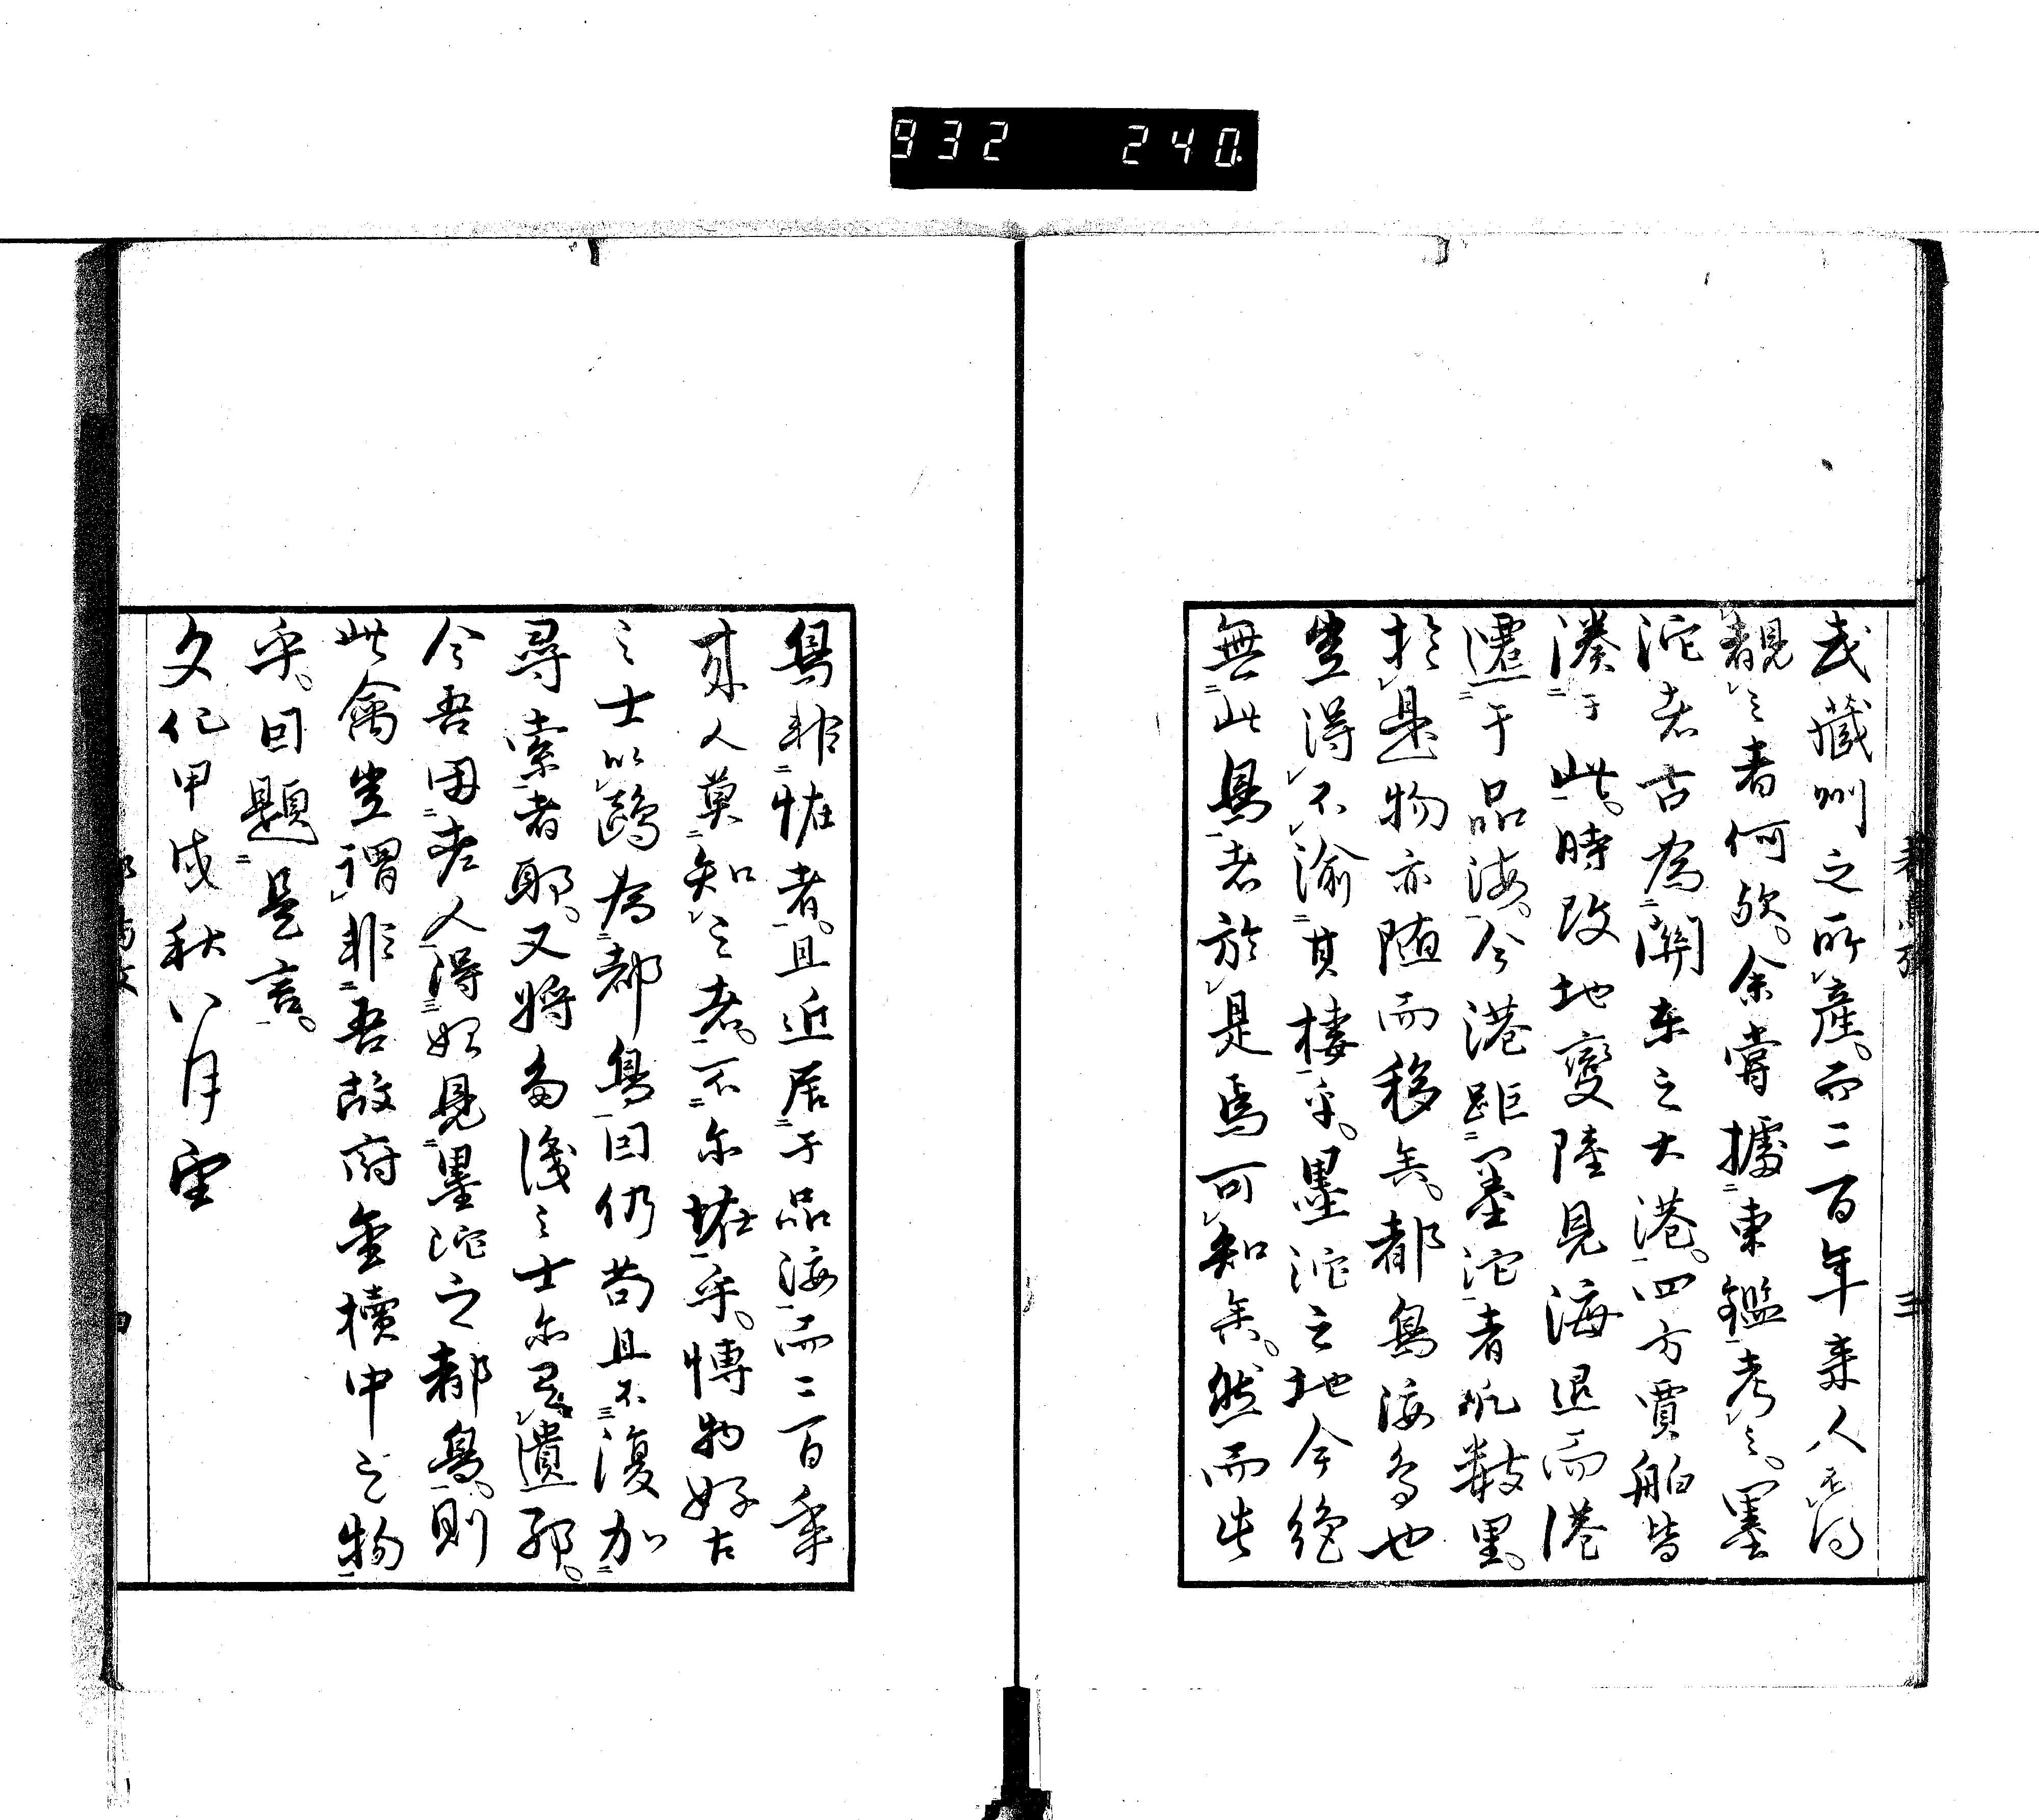 932 240
武藏州之所產而二百年來人不得
覩之者何歟。余嘗據東鑑考之。墨
沱者古為關東之大港。四方賈舶皆
湊于此。時改地變陸見海退而港
遷于品海。今港距墨沱者凡數里。
於是物亦随而移矣。都鳥海鳥也
豈得不渝其棲乎。墨沱之地今絕
無此鳥者於是焉可知矣。然而此
三
鳥非恠者。且近居于品海而二百年
來人莫知之者。不尔怪乎。博物好古
之士以鷗為都鳥因仍苟且不復加
尋索者耶。又將為淺之士尔見遺耶。
今吾田老人得始見墨沱之都鳥。則
此禽豈謂非吾故府金櫝中之物
乎。因題是言。
文化甲戌秋八月望
四